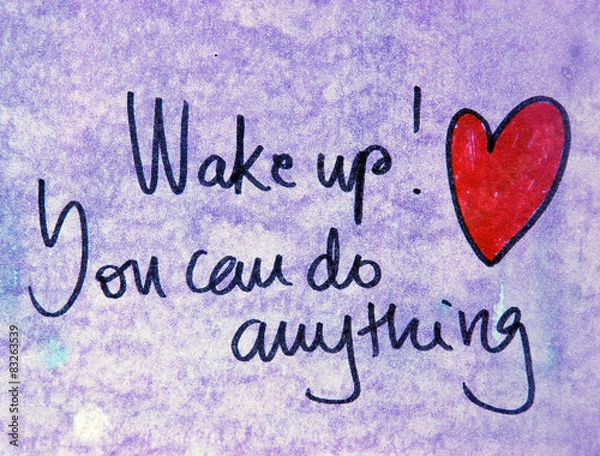 Wake up!
You can do
anything
Adobe Stock | #83263539